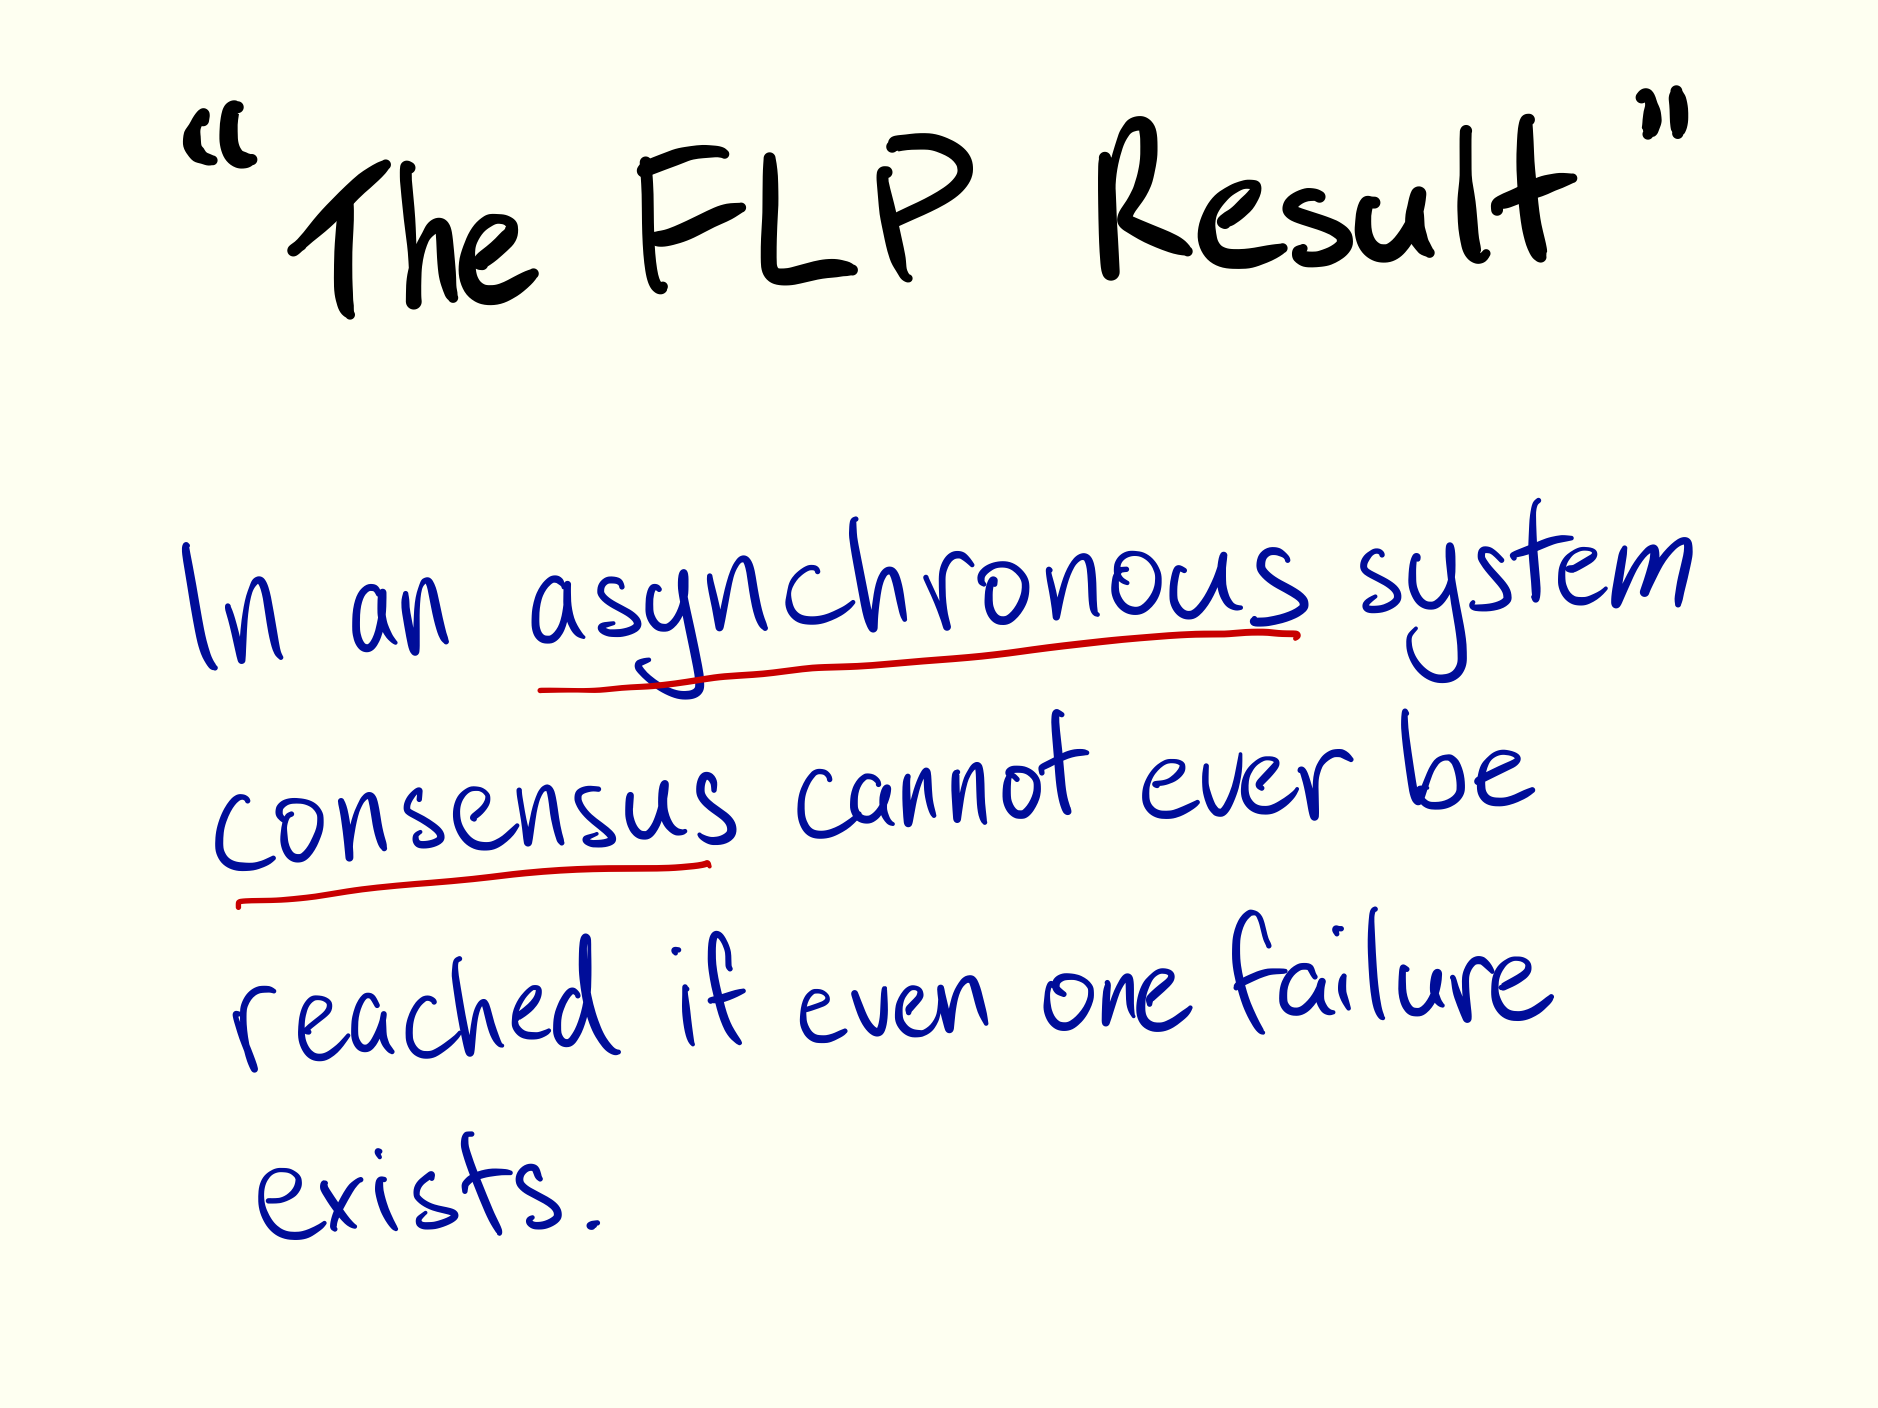 “The FLP Result”
In an asynchronous system
consensus cannot ever be
reached if even one failure
exists.